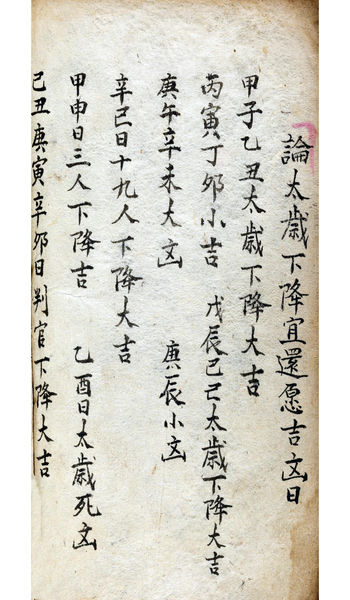 論太歲下降宜還愿吉凶日
甲子乙丑太歲下降大吉
丙寅丁卯小吉 戊辰己巳太歲下降大吉
庚午辛未大凶 庚辰小凶
辛巳日十九人下降大吉
甲申日三人下降吉 乙酉日太歲死凶
己丑庚寅辛卯日判官下降大吉